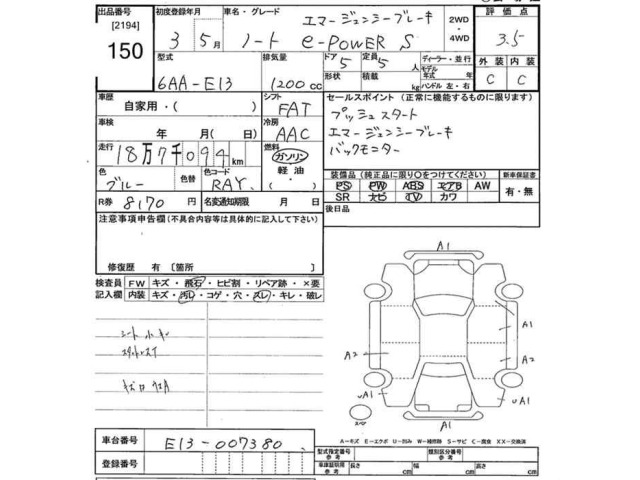 出品番号 初度登録年月 車名・グレード エマージェンシーブレーキ 2WD ・ 4WD 評価点
[2194]
150 3年5月 ノート e-POWER S 3.5
型式 排気量 ドア 定員 ディーラー・並行 外装 内装
6AA-E13 1200cc 5 5人 モデル年式 年
形状 積載 kg ハンドル 左・右 C C
車歴 シフト セールスポイント(正常に機能するものに限ります)
自家用・( ) FAT プッシュスタート
車検 冷房 エマージェンシーブレーキ
年 月(日) AAC バックモニター
走行 燃料
18万7千094km ガソリン
軽油 装備品(純正品に限り○をつけてください) 新車保証書
色 色替 色コード PS PW ABS エアB AW 有・無
ブルー RAY SR ナビ TV カワ
R券 8170円 名変通知期限 月 日 後日品
注意事項申告欄(不具合内容等は具体的に記入して下さい)
修復歴 有〔箇所 〕
検査員記入欄 FW キズ・飛石・ヒビ割・リペア跡・×要
内装 キズ・汚レ・コゲ・穴・スレ・キレ・破レ
A1
A1
A2 A2
uA1 uA1
A1
A-キズ E-エクボ U-凹み W-補修跡 S-サビ C-腐食 XX-交換済
車台番号 E13-007380
登録番号
型式指定番号 参考 類別区分番号 参考
車庫証明用 参考 長さ cm 幅 cm 高さ cm